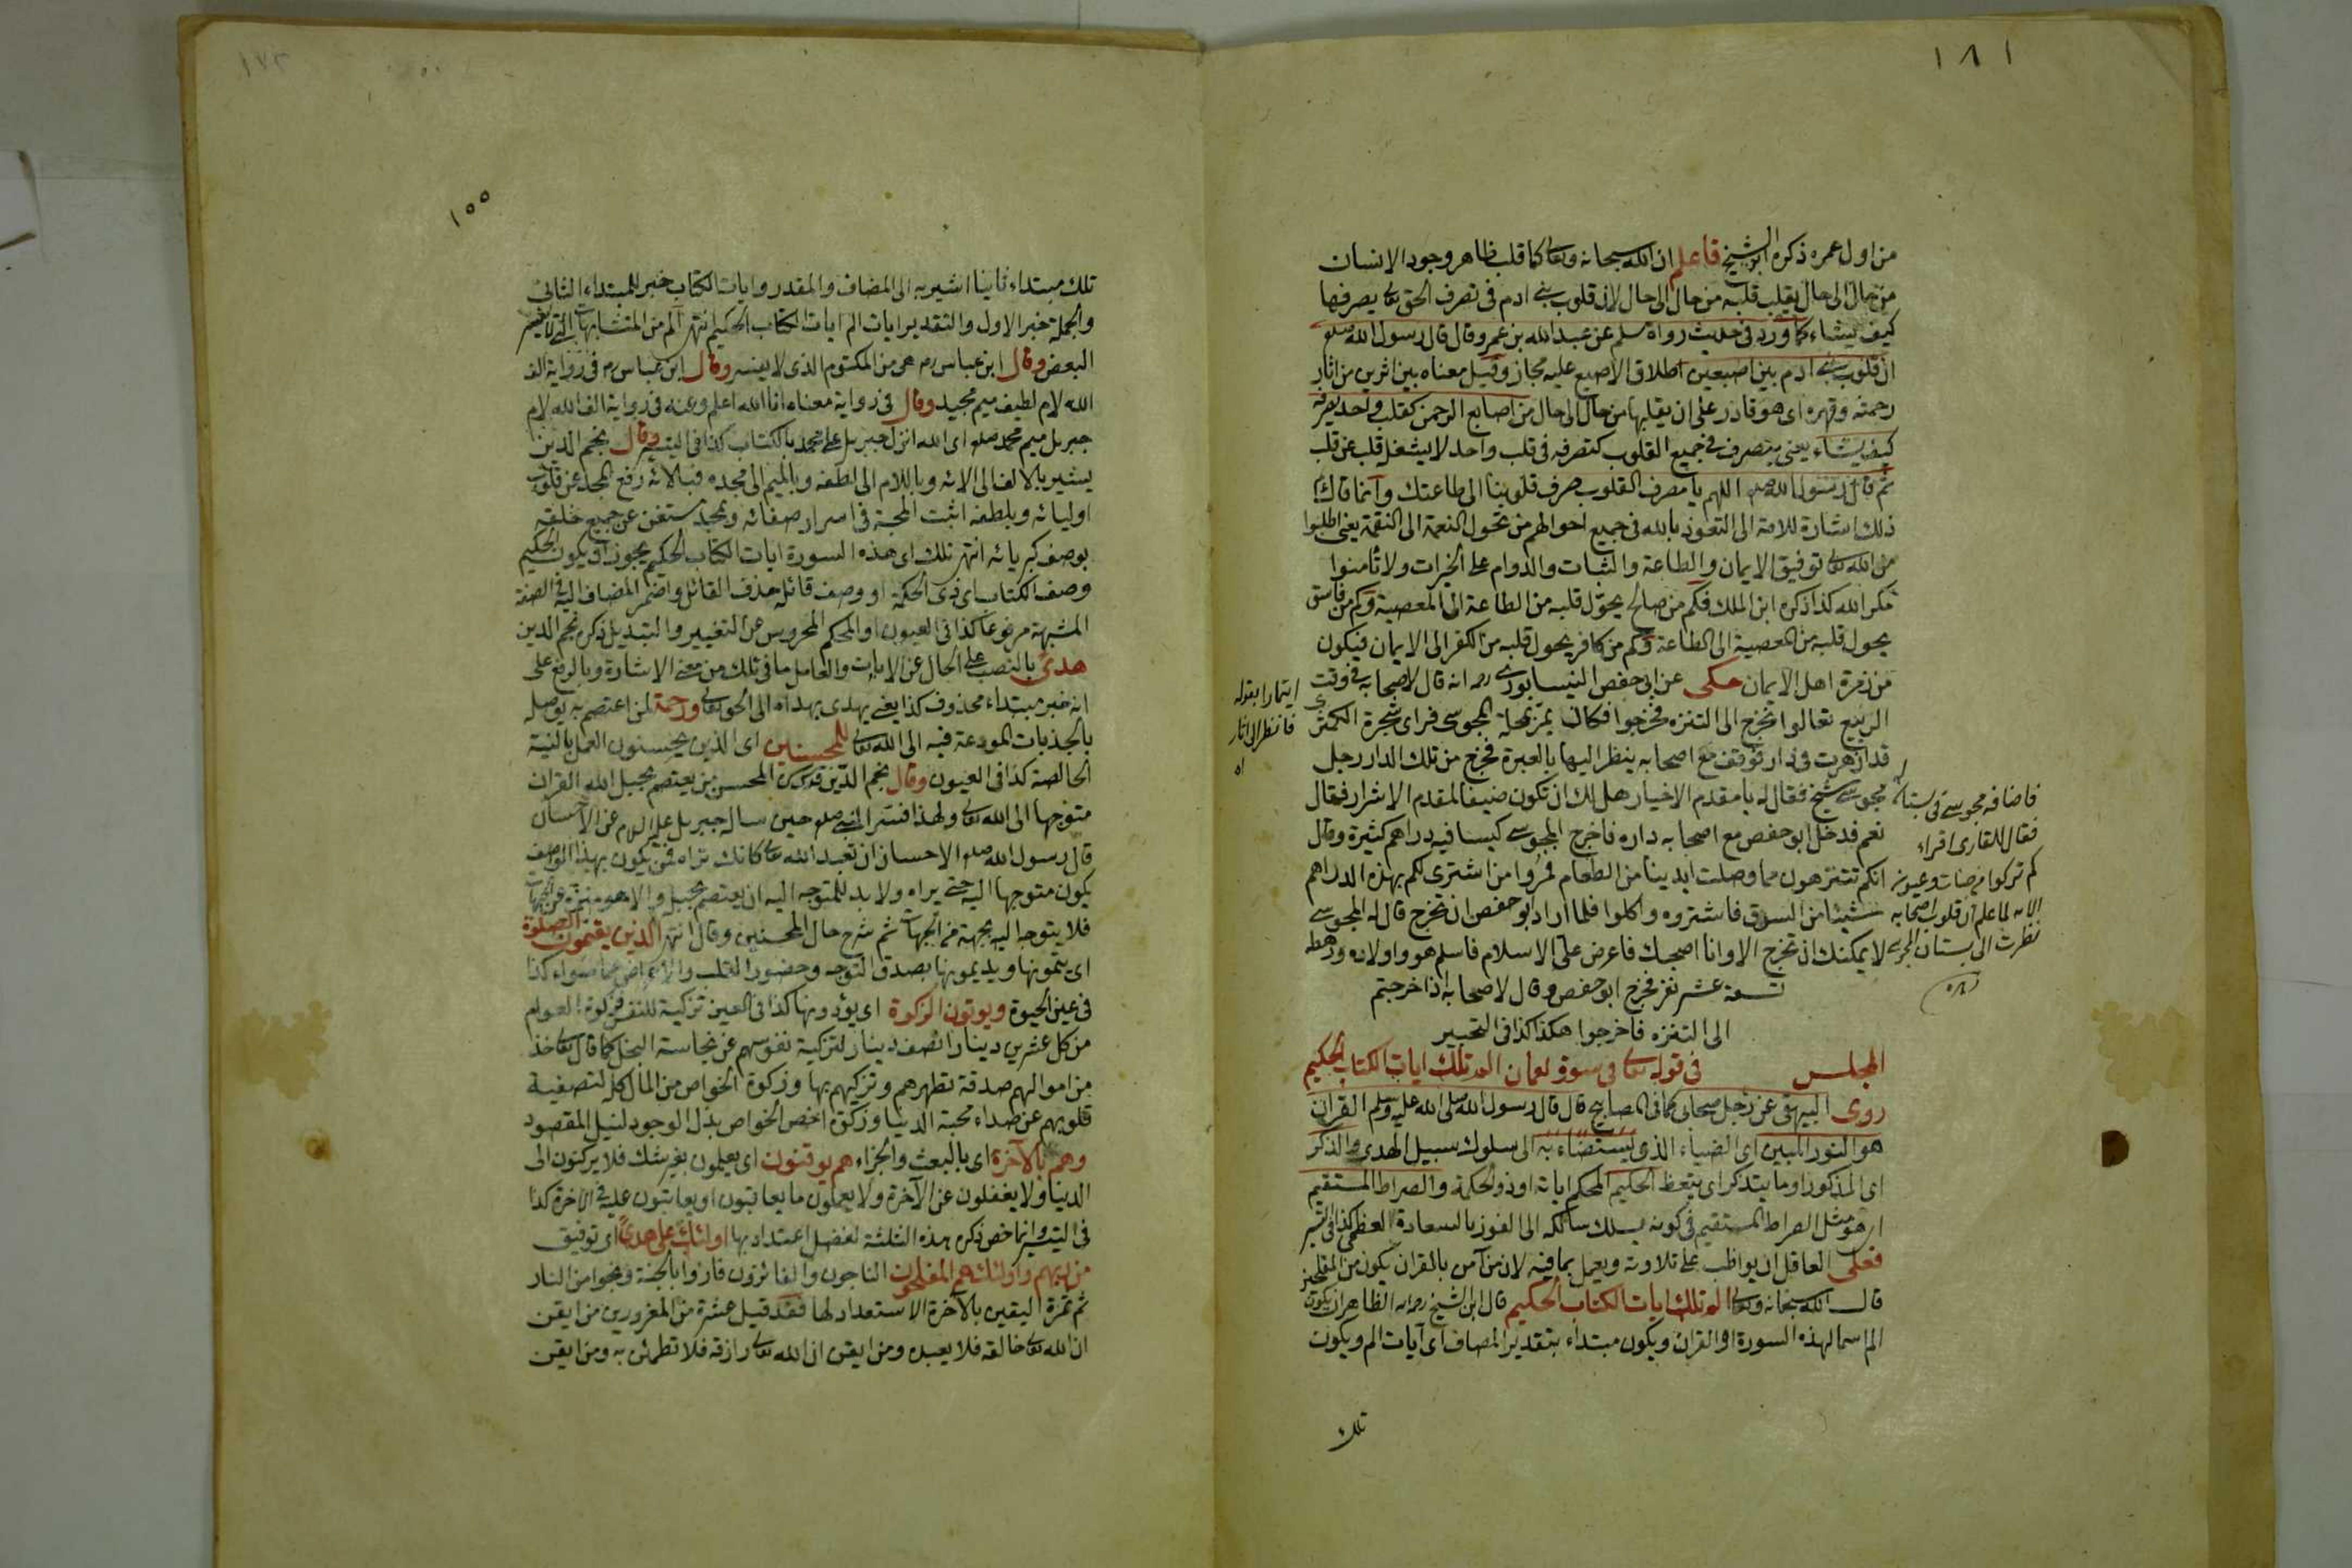 ١٨١
من اول عمره ذكره ابن الشيخ فاعلم ان الله سبحانه وتعالى كما قلب ظاهر وجود الانسان
من حال الى حال يقلب قلبه من حال الى حال لان قلوب بنى ادم فى تصرف الحق تعالى يصرفها
كيف يشاء كما ورد فى حديث رواه مسلم عن عبد الله بن عمرو قال قال رسول الله صلعم
ان قلوب بنى ادم بين اصبعين اطلاق الاصبع عليه مجاز وقيل معناه بين اثرين من اثار
رحمته وقهره اى هو قادر على ان يقلبها من حال الى حال من اصابع الرحمن كقلب واحد يصرفه
كيف يشاء يعنى يتصرف فى جميع القلوب كتصرفه فى قلب واحد لا يشغله قلب عن قلب
ثم قال رسول الله صلعم اللهم يا مصرف القلوب صرف قلوبنا الى طاعتك وانما قال
ذلك اشارة للامة الى التعوذ بالله فى جميع احوالهم من تحول النعمة الى النقمة يعنى اطلبوا
من الله تعالى توفيق الايمان والطاعة والثبات والدوام على الخيرات ولا تأمنوا
مكر الله كذا ذكره ابن الملك فكم من صالح يحول قلبه من الطاعة الى المعصية وكم من فاسق
يحول قلبه من المعصية الى الطاعة وكم من كافر يحول قلبه من الكفر الى الايمان فيكون
من زمرة اهل الايمان حكى عن ابى حفص النيسابورى رحمه انه قال لاصحابه فى وقت
الربيع تعالوا نخرج الى التنزه فخرجوا فكان يمر بمحلة المجوسى فراى شجرة الكمثرى
قد ازهرت فى دار فوقف مع اصحابه ينظر اليها بالعبرة فخرج من تلك الدار رجل
مجوسى شيخ فقال له يا مقدم الاخيار هل لك ان تكون ضيفا لمقدم الاشرار فقال
نعم فدخل ابو حفص مع اصحابه داره فاخرج المجوسى كيسا فيه دراهم كثيرة وقال
انكم تتنزهون مما وصلت ايدينا من الطعام فمروا من اشترى لكم بهذه الدراهم
شيئا من السوق فاشتروه واكلوا فلما اراد ابو حفص ان تخرج قال له المجوسى
لا يمكنك ان تخرج الا وانا اصحبك فاعرض على الاسلام فاسلم هو واولاده ورهطه
تسعة عشر نفر فخرج ابو حفص وقال لاصحابه اذا خرجتم
الى التنزه فاخرجوا هكذا كذا فى التحبير
المجلس فى قوله تعالى فى سورة لقمان الم تلك ايات الكتاب الحكيم
روى البيهقى عن رجل صحابى كما فى المصابيح قال قال رسول الله صلى الله عليه وسلم القران
هو النور المبين اى الضياء الذى يستضاء به الى سلوك سبيل الهدى والذكر
اى المذكور او ما يتذكر اى يتعظ الحكيم المحكم اياته او ذو الحكمة والصراط المستقيم
اى هو مثل الصراط المستقيم فى كونه يسلك سالكه الى الفوز بالسعادة العظمى كذا فى التيسير
فعلى العاقل ان يواظب على تلاوته ويعمل بما فيه لان من آمن بالقران يكون من المفلحين
قال الله سبحانه وتعالى الم تلك ايات الكتاب الحكيم قال ابن الشيخ رحمه الله الظاهر ان يكون
الم اسما لهذه السورة او القران ويكون مبتداء بتقدير المضاف اى آيات الم ويكون
تلك
ايتمارا بقوله
فانظر الى اثار
اه
فاضافه مجوسى فى بستانه
فقال للقارى اقراء
كم تركوا من جنات وعيون
الايه لما علم ان قلوب اصحابه
نظرت الى بستان المجوسى
١٥٥
تلك مبتداء ثانيا اشير به الى المضاف والمقدر وايات الكتاب خبر للمبتداء الثانى
والجملة خبر الاول والتقدير ايات الم ايات الكتاب الحكيم انتهى الم من المتشابهات التى لا يفسر
البعض وقال ابن عباس رض هى من المكتوم الذى لا يفسر وقال ابن عباس رض فى رواية الف
الله لام لطيف ميم مجيد وقال فى رواية معناه انا الله اعلم وعنه فى رواية الف الله لام
جبريل ميم محمد صلعم اى الله انزل جبريل على محمد بالكتاب كذا فى التيسير وقال نجم الدين
يشير بالالف الى الائه وباللام الى لطفه وبالميم الى مجده فبالائه رفع الجحد عن قلوب
اوليائه وبلطفه اثبت المحبة فى اسرار صفائه وبمجده مستغن عن جميع خلقه
بوصف كبريائه انتهى تلك اى هذه السورة ايات الكتاب الحكيم يجوز ان يكون الحكيم
وصف الكتاب اى ذى الحكمة او وصف قائله حذف القائل واضمر المضاف اليه فى الصفة
المشبهة مرفوعا كذا فى العيون او المحكم المحروس عن التغيير والتبديل ذكره نجم الدين
هدى بالنصب على الحال عن الايات والعامل ما فى تلك من معنى الاشارة وبالرفع على
انه خبر مبتداء محذوف كذا يعنى يهدى بهداه الى الحق تعالى ورحمة لمن اعتصم به يوصله
بالجذبات المودعة فيه الى الله تعالى للمحسنين اى الذين يحسنون العمل بالنية
الخالصة كذا فى العيون وقال نجم الدين قدس سره المحسن من يعتصم بحبل الله القران
متوجها الى الله تعالى ولهذا فسر النبى صلعم حين ساله جبريل عليه السلام عن الاحسان
قال رسول الله صلعم الاحسان ان تعبد الله تعالى كانك تراه فمن يكون بهذا الوصف
يكون متوجها اليه حتى يراه ولا بد للمتوجه اليه ان يعتصم بحبله والا هو منزه عن الجهات
فلا يتوجه اليه بجهة من الجهات ثم شرح حال المحسنين وقال انتهى الذين يقيمون الصلوة
اى يتمونها ويديمونها بصدق التوجه وحضور القلب والاعراض عما سواه كذا
فى عين الحيوة ويوتون الزكوة اى يؤدونها كذا فى العين تزكية للنفس فزكوة العوام
من كل عشرين دينارا نصف دينار لتزكية نفوسهم عن نجاسة البخل كما قال تعالى خذ
من اموالهم صدقة تطهرهم وتزكيهم بها وزكوة الخواص من المال كله لتصفية
قلوبهم عن صداء محبة الدنيا وزكوة اخص الخواص بذل الوجود لنيل المقصود
وهم بالآخرة اى بالبعث والجزاء هم يوقنون اى يعلمون بغير شك فلا يركنون الى
الدنيا ولا يغفلون عن الآخرة ولا يعملون ما يعاتبون او يعاقبون عليه فى الآخرة كذا
فى التيسير وانما خص ذكر هذه الثلثة لفضل اعتداد بها اولئك على هدى اى توفيق
من ربهم واولئك هم المفلحون الناجون والفائزون فازوا بالجنة ونجوا من النار
ثم ثمرة اليقين بالآخرة الاستعداد لها فقد قيل عشرة من المغرورين من ايقن
ان الله تعالى خالقه فلا يعبده ومن ايقن ان الله تعالى رازقه فلا تطمئن به ومن ايقن